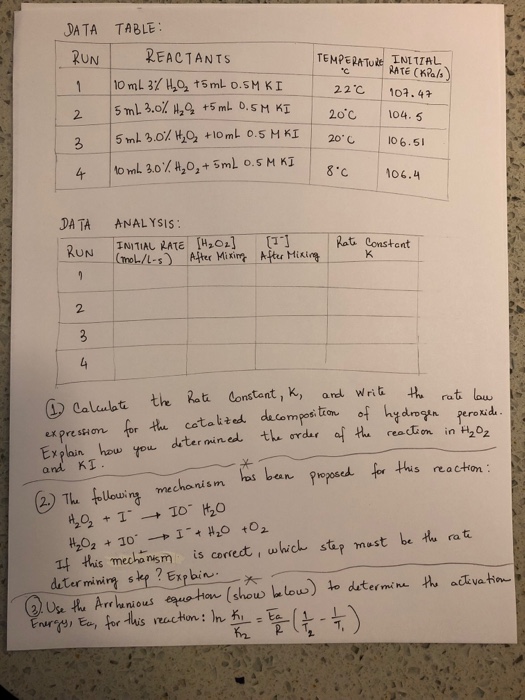 DATA TABLE:
RUN REACTANTS TEMPERATURE °C INITIAL RATE (KPa/s)
1 10 mL 3% H₂O₂ +5mL 0.5M KI 22°C 107.47
2 5 mL 3.0% H₂O₂ +5mL 0.5M KI 20°C 104.5
3 5 mL 3.0% H₂O₂ +10mL 0.5 M KI 20°C 106.51
4 10 mL 3.0% H₂O₂ + 5mL 0.5 M KI 8°C 106.4
DATA ANALYSIS:
RUN INITIAL RATE (moL/L-s) [H₂O₂] After Mixing [I⁻] After Mixing Rate Constant K
1
2
3
4
① Calculate the Rate Constant, K, and write the rate law
expression for the catalized decomposition of hydrogen peroxide.
Explain how you determined the order of the reaction in H₂O₂
and KI.
*
② The following mechanism has been proposed for this reaction:
H₂O₂ + I⁻ → IO⁻ H₂O
H₂O₂ + IO⁻ → I⁻ + H₂O + O₂
If this mechanism is correct, which step must be the rate
determining step? Explain.
*
③ Use the Arrhenious equation (show below) to determine the activation
Energy, Ea, for this reaction: ln K₁/K₂ = Ea/R (1/T₂ - 1/T₁)